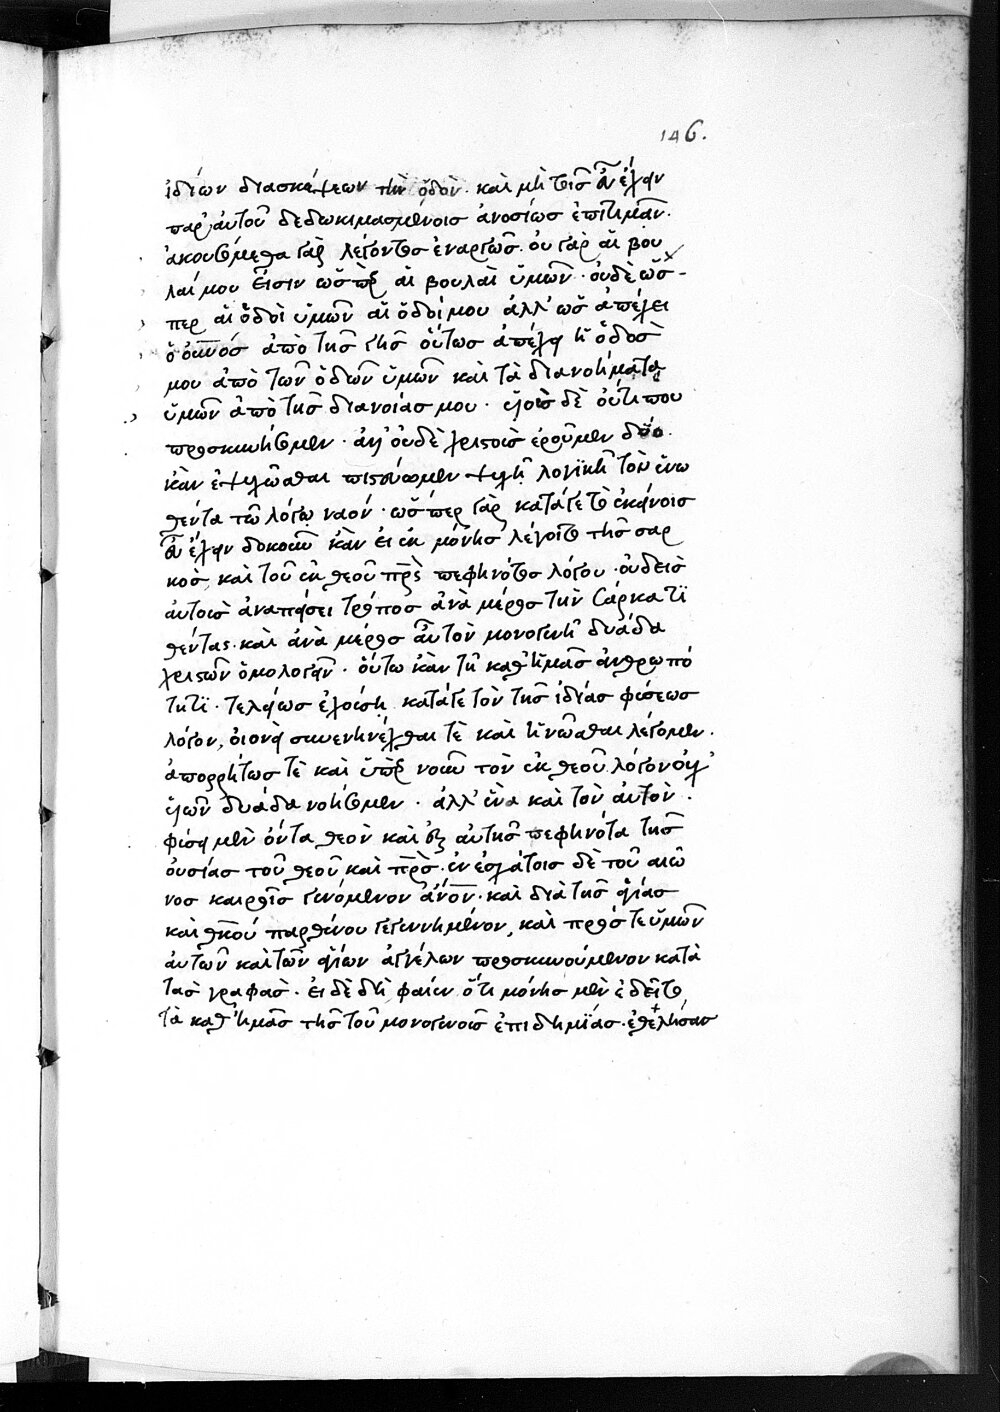 146.
ἰδίων διασκέψεων τὴν ὁδὸν. καὶ μὴ τοῖς εὖ ἔχειν
παρ' αὐτοῦ δεδωκιμασμένοις ἀνοσίως ἐπιτιμᾶν.
ἀκουσόμεθα γὰρ λέγοντος ἐναργῶς. οὐ γὰρ αἱ βου
λαί μου εἰσιν ὥσπερ αἱ βουλαὶ ὑμῶν. οὐδὲ ὥσ-
περ αἱ ὁδοὶ ὑμῶν αἱ ὁδοί μου ἀλλ' ὡς ἀπέχει
ὁ οὐνος ἀπὸ τῆς γῆς οὕτως ἀπέχει ἡ ὁδος
μου ἀπὸ τῶν ὁδῶν ὑμῶν καὶ τὰ διανοήματα
ὑμῶν ἀπὸ τῆς διανοίας μου. δὲ οὔτι που
προσκυνήσομεν. ἀλλ' οὐδὲ χριστοὺς ἐροῦμεν δύο.
κἂν ἐψυχῶσθαι πιστεύωμεν ψυχῇ λογικῇ τὸν ἑνω
θέντα τῶ λόγω ναόν. ὥσπερ γὰρ κατά γε τὸ ἐκείνοις
εὖ ἔχειν δοκοῦν κἂν εἰ ἐκ μόνης λέγοιτο τῆς σαρ
κός, καὶ τοῦ ἐκ θεοῦ πρς πεφηνότος λόγου. οὐδεὶς
αὐτοὺς ἀναπείσει τρόπος ἀνὰ μέρος τὴν σάρκα τι
θέντας. καὶ ἀνὰ μέρος αὖ τὸν μονογενῆ δυάδα
χριστῶν ὁμολογεῖν. οὕτω κἂν τῇ καθ' ἡμᾶς ἀνθρωπό
τητι. τελείως ἐχούσῃ κατά γε τὸν τῆς ἰδίας φύσεως
λόγον, οἱονεὶ συνενηνέχθαι τὲ καὶ ἡνῶσθαι λέγομεν.
ἀπορρήτως τὲ καὶ ὑπὲρ νοῦν τὸν ἐκ θεοῦ λόγον οὐχ'
υἱῶν δυάδα νοήσομεν. ἀλλ' ἕνα καὶ τὸν αὐτὸν.
φύσει μὲν ὄντα θεὸν καὶ ἐξ αὐτῆς πεφηνότα τῆς
οὐσίας τοῦ θεοῦ καὶ πρς. ἐν ἐσχάτοις δὲ τοῦ αἰῶ
νος καιροῖς γενόμενον ἄνον. καὶ διὰ τῆς ἁγίας
καὶ θκου παρθένου γεγεννημένον, καὶ πρός τε ὑμῶν
αὐτῶν καὶ τῶν ἁγίων ἀγγέλων προσκυνούμενον κατὰ
τὰς γραφάς. εἰ δὲ δὴ φαῖεν ὅτι μόνης μὲν ἐδεῖτο
τὰ καθ' ἡμᾶς τῆς τοῦ μονογενοῦς ἐπιδημίας. ἐθελήσας